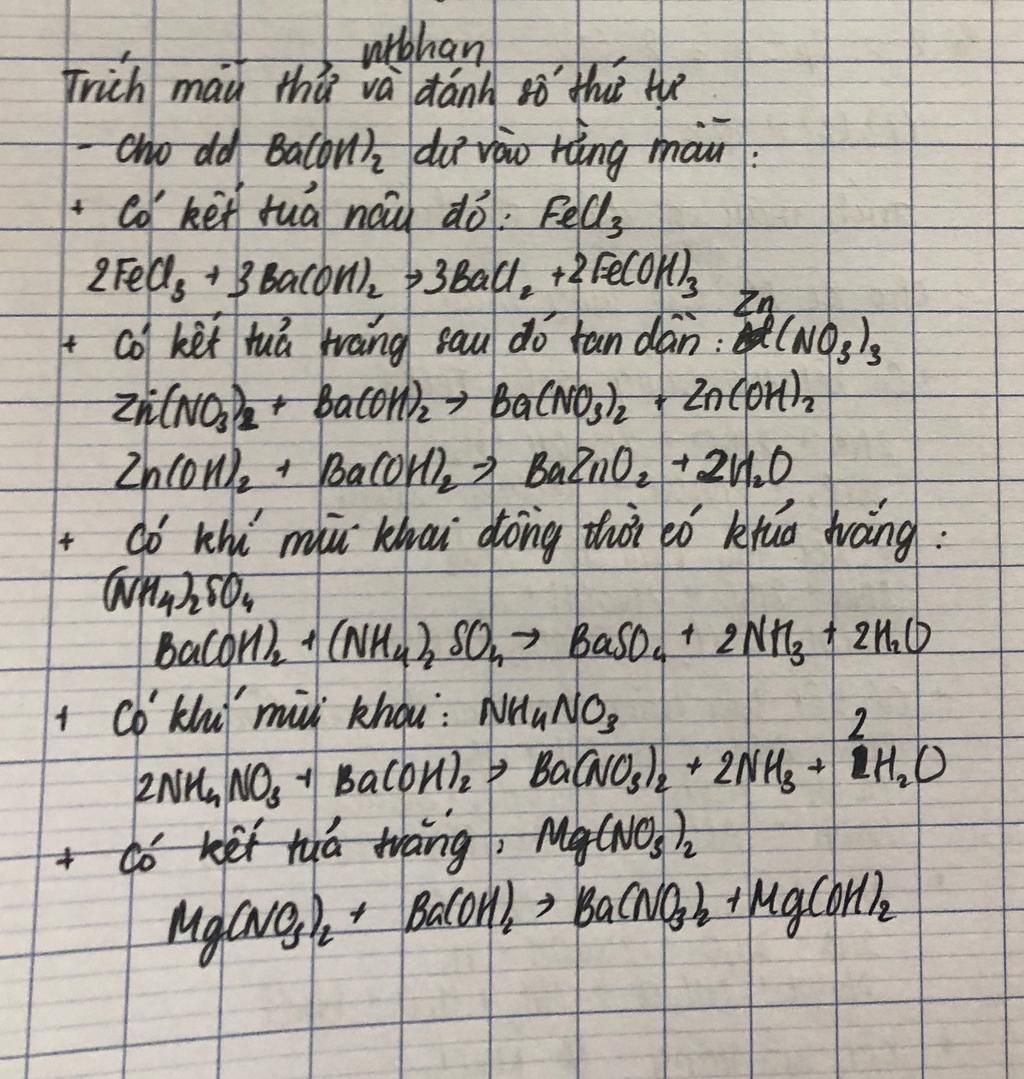 Trích mẫu thử và đánh số thứ tự
- Cho dd Ba(OH)2 dư vào từng mẫu :
+ Có kết tủa nâu đỏ : FeCl3
2FeCl3 + 3Ba(OH)2 → 3BaCl2 + 2Fe(OH)3
+ Có kết tủa trắng sau đó tan dần : Zn(NO3)3
Zn(NO3)2 + Ba(OH)2 → Ba(NO3)2 + Zn(OH)2
Zn(OH)2 + Ba(OH)2 → BaZnO2 + 2H2O
+ Có khí mùi khai đồng thời có ktủa trắng :
(NH4)2SO4
Ba(OH)2 + (NH4)2SO4 → BaSO4 + 2NH3 + 2H2O
+ Có khí mùi khai : NH4NO3
2NH4NO3 + Ba(OH)2 → Ba(NO3)2 + 2NH3 + 2H2O
+ Có kết tủa trắng : Mg(NO3)2
Mg(NO3)2 + Ba(OH)2 → Ba(NO3)2 + Mg(OH)2